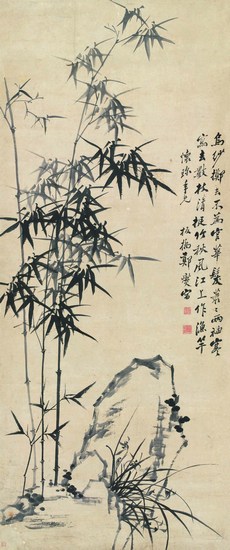 烏紗擲去不為官華髮蕭〻兩袖寒
寫去數枝清挺竹秋風江上作漁竿
年兄
板橋鄭燮寫